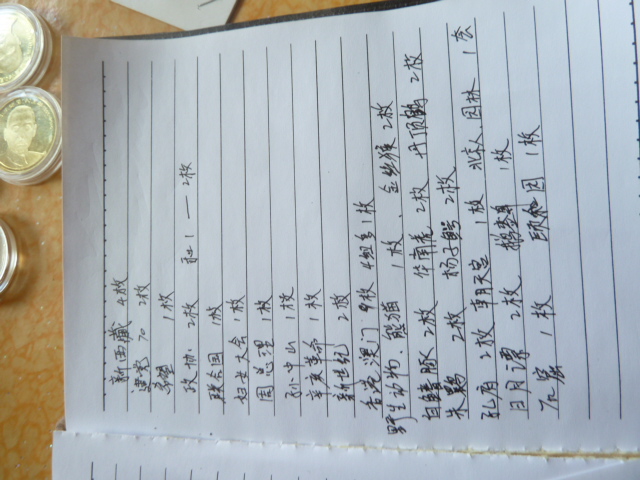 新西藏 4枚
建党 70 2枚
1枚
政协 2枚 和1一 2枚
联合国 1枚
妇女大会 1枚
周总理 1枚
孙中山 1枚
辛亥革命 1枚
新世纪 2枚
香港、澳门 9枚 1枚
野生动物、熊猫 1枚、金丝猴 2枚
白鳍豚 2枚 华南虎 2枚 丹顶鹤 2枚
朱鹮 2枚 扬子鳄 2枚
孔庙 2枚 朝天宫 1枚 园林 1套
日月潭 2枚 1枚
1枚 颐和园 1枚